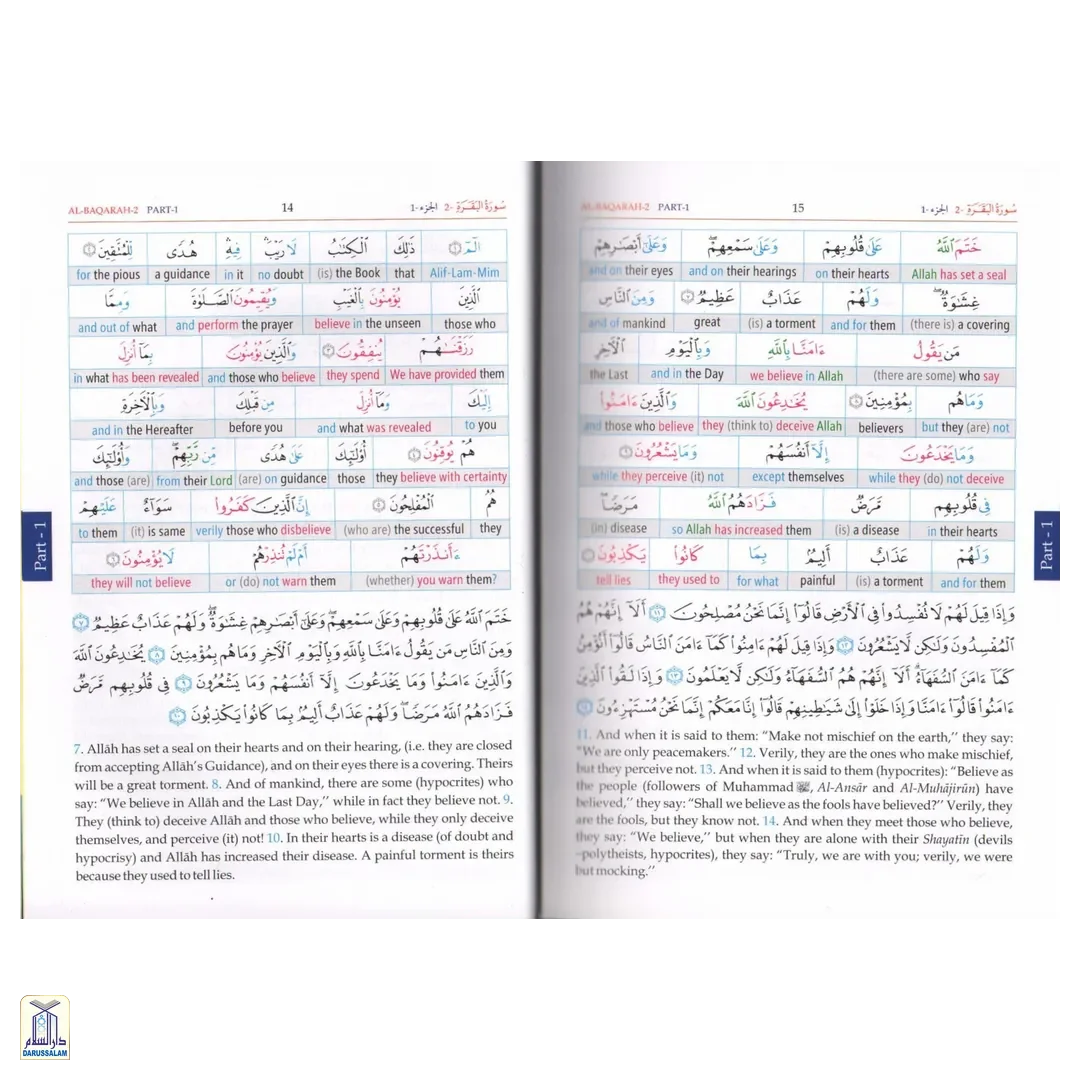 AL-BAQARAH-2 PART-1 14 سُورَةُ البَقَرَةِ -2 الجزء-1
الٓمٓ ١ ذَٰلِكَ ٱلْكِتَٰبُ لَا رَيْبَ ۛ فِيهِ ۛ هُدًى لِّلْمُتَّقِينَ ٢
for the pious a guidance in it no doubt (is) the Book that Alif-Lam-Mim
ٱلَّذِينَ يُؤْمِنُونَ بِٱلْغَيْبِ وَيُقِيمُونَ ٱلصَّلَوٰةَ وَمِمَّا
and out of what and perform the prayer believe in the unseen those who
رَزَقْنَٰهُمْ يُنفِقُونَ ٣ وَٱلَّذِينَ يُؤْمِنُونَ بِمَآ أُنزِلَ
in what has been revealed and those who believe they spend We have provided them
إِلَيْكَ وَمَآ أُنزِلَ مِن قَبْلِكَ وَبِٱلْءَاخِرَةِ
and in the Hereafter before you and what was revealed to you
هُمْ يُوقِنُونَ ٤ أُو۟لَٰٓئِكَ عَلَىٰ هُدًى مِّن رَّبِّهِمْ ۖ وَأُو۟لَٰٓئِكَ
and those (are) from their Lord (are) on guidance those they believe with certainty
هُمُ ٱلْمُفْلِحُونَ ٥ إِنَّ ٱلَّذِينَ كَفَرُوا۟ سَوَآءٌ عَلَيْهِمْ
to them (it) is same verily those who disbelieve (who are) the successful they
ءَأَنذَرْتَهُمْ أَمْ لَمْ تُنذِرْهُمْ لَا يُؤْمِنُونَ ٦
they will not believe or (do) not warn them (whether) you warn them?
خَتَمَ ٱللَّهُ عَلَىٰ قُلُوبِهِمْ وَعَلَىٰ سَمْعِهِمْ ۖ وَعَلَىٰٓ أَبْصَٰرِهِمْ غِشَٰوَةٌ ۖ وَلَهُمْ عَذَابٌ عَظِيمٌ ٧
وَمِنَ ٱلنَّاسِ مَن يَقُولُ ءَامَنَّا بِٱللَّهِ وَبِٱلْيَوْمِ ٱلْءَاخِرِ وَمَا هُم بِمُؤْمِنِينَ ٨ يُخَٰدِعُونَ ٱللَّهَ
وَٱلَّذِينَ ءَامَنُوا۟ وَمَا يَخْدَعُونَ إِلَّآ أَنفُسَهُمْ وَمَا يَشْعُرُونَ ٩ فِى قُلُوبِهِم مَّرَضٌ
فَزَادَهُمُ ٱللَّهُ مَرَضًا ۖ وَلَهُمْ عَذَابٌ أَلِيمٌۢ بِمَا كَانُوا۟ يَكْذِبُونَ ١٠
7. Allāh has set a seal on their hearts and on their hearing, (i.e. they are closed
from accepting Allāh's Guidance), and on their eyes there is a covering. Theirs
will be a great torment. 8. And of mankind, there are some (hypocrites) who
say: "We believe in Allāh and the Last Day," while in fact they believe not. 9.
They (think to) deceive Allāh and those who believe, while they only deceive
themselves, and perceive (it) not! 10. In their hearts is a disease (of doubt and
hypocrisy) and Allāh has increased their disease. A painful torment is theirs
because they used to tell lies.
Part - 1
AL-BAQARAH-2 PART-1 15 سُورَةُ البَقَرَةِ -2 الجزء-1
خَتَمَ ٱللَّهُ عَلَىٰ قُلُوبِهِمْ وَعَلَىٰ سَمْعِهِمْ ۖ وَعَلَىٰٓ أَبْصَٰرِهِمْ
and on their eyes and on their hearings on their hearts Allah has set a seal
غِشَٰوَةٌ ۖ وَلَهُمْ عَذَابٌ عَظِيمٌ ٧ وَمِنَ ٱلنَّاسِ
and of mankind great (is) a torment and for them (there is) a covering
مَن يَقُولُ ءَامَنَّا بِٱللَّهِ وَبِٱلْيَوْمِ ٱلْءَاخِرِ
the Last and in the Day we believe in Allah (there are some) who say
وَمَا هُم بِمُؤْمِنِينَ ٨ يُخَٰدِعُونَ ٱللَّهَ وَٱلَّذِينَ ءَامَنُوا۟
and those who believe they (think to) deceive Allah believers but they (are) not
وَمَا يَخْدَعُونَ إِلَّآ أَنفُسَهُمْ وَمَا يَشْعُرُونَ ٩
while they perceive (it) not except themselves while they (do) not deceive
فِى قُلُوبِهِم مَّرَضٌ فَزَادَهُمُ ٱللَّهُ مَرَضًا
(in) disease so Allah has increased them (is) a disease in their hearts
وَلَهُمْ عَذَابٌ أَلِيمٌۢ بِمَا كَانُوا۟ يَكْذِبُونَ ١٠
tell lies they used to for what painful (is) a torment and for them
وَإِذَا قِيلَ لَهُمْ لَا تُفْسِدُوا۟ فِى ٱلْأَرْضِ قَالُوٓا۟ إِنَّمَا نَحْنُ مُصْلِحُونَ ١١ أَلَآ إِنَّهُمْ هُمُ
ٱلْمُفْسِدُونَ وَلَٰكِن لَّا يَشْعُرُونَ ١٢ وَإِذَا قِيلَ لَهُمْ ءَامِنُوا۟ كَمَآ ءَامَنَ ٱلنَّاسُ قَالُوٓا۟ أَنُؤْمِنُ
كَمَآ ءَامَنَ ٱلسُّفَهَآءُ ۗ أَلَآ إِنَّهُمْ هُمُ ٱلسُّفَهَآءُ وَلَٰكِن لَّا يَعْلَمُونَ ١٣ وَإِذَا لَقُوا۟ ٱلَّذِينَ
ءَامَنُوا۟ قَالُوٓا۟ ءَامَنَّا وَإِذَا خَلَوْا۟ إِلَىٰ شَيَٰطِينِهِمْ قَالُوٓا۟ إِنَّا مَعَكُمْ إِنَّمَا نَحْنُ مُسْتَهْزِءُونَ ١٤
11. And when it is said to them: "Make not mischief on the earth," they say:
"We are only peacemakers." 12. Verily, they are the ones who make mischief,
but they perceive not. 13. And when it is said to them (hypocrites): "Believe as
the people (followers of Muhammad ﷺ, Al-Ansār and Al-Muhājirūn) have
believed," they say: "Shall we believe as the fools have believed?" Verily, they
are the fools, but they know not. 14. And when they meet those who believe,
they say: "We believe," but when they are alone with their Shayatīn (devils
–polytheists, hypocrites), they say: "Truly, we are with you; verily, we were
but mocking."
Part - 1
دارالسلام
DARUSSALAM